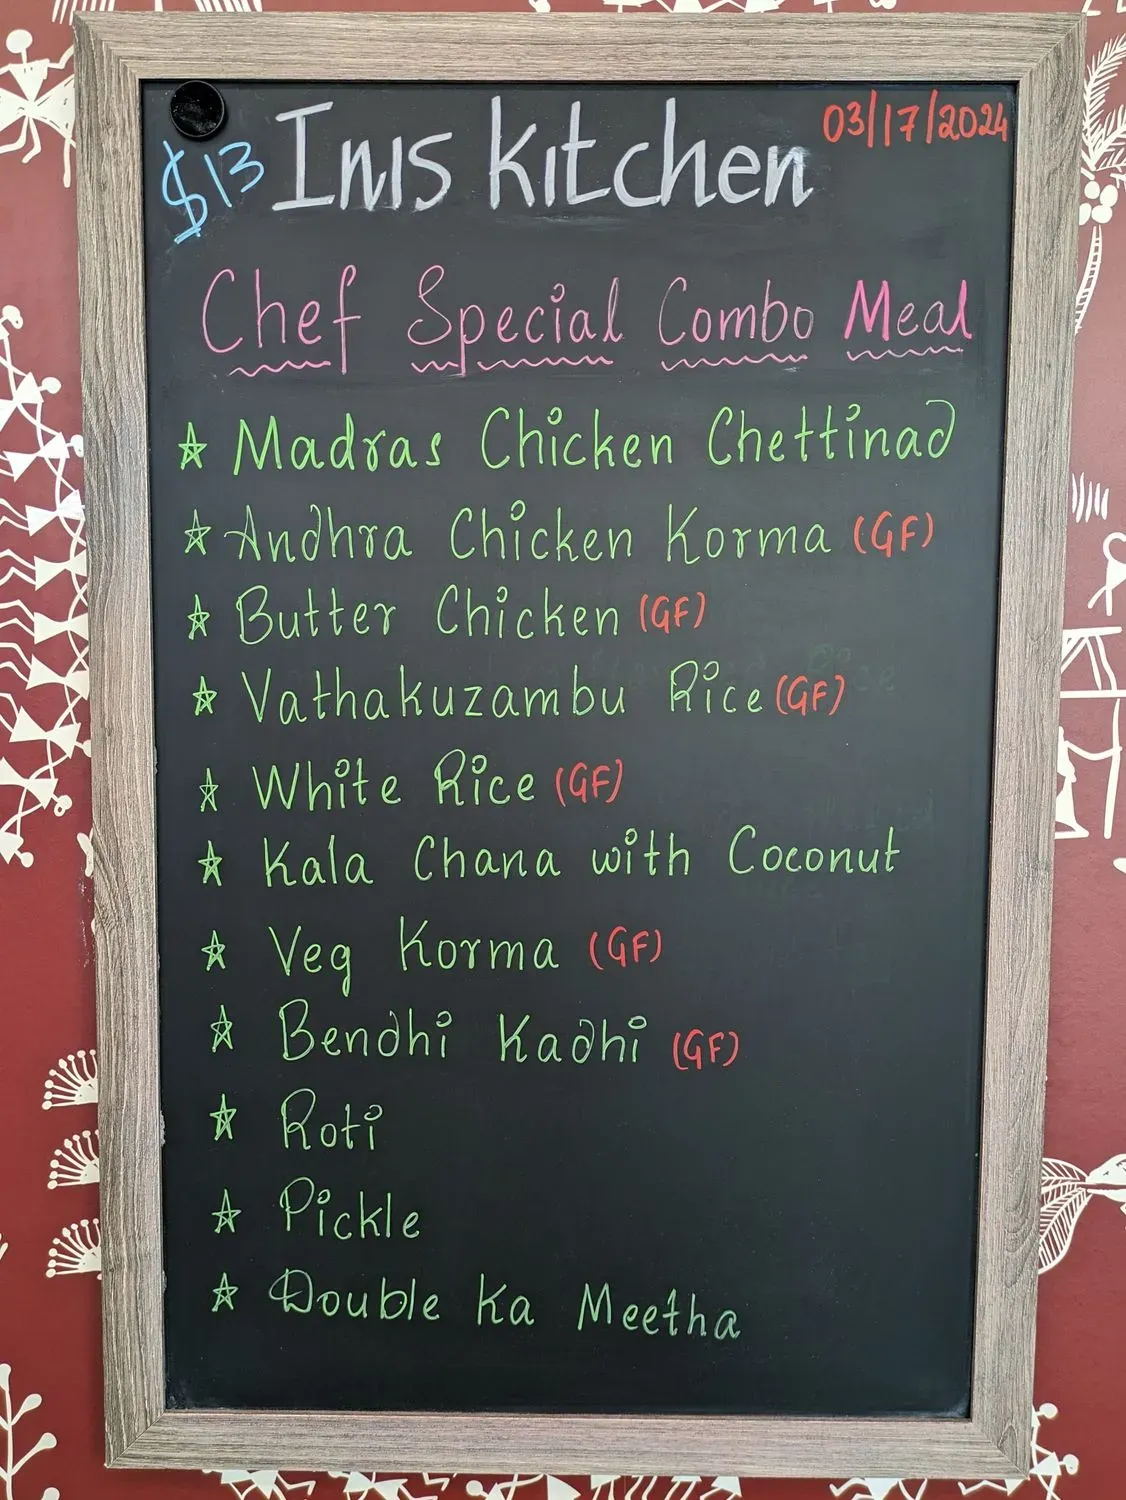 $13 Inis kitchen 03/17/2024
Chef Special Combo Meal
☆ Madras Chicken Chettinad
☆ Andhra Chicken Korma (GF)
☆ Butter Chicken (GF)
☆ Vathakuzambu Rice (GF)
☆ White Rice (GF)
☆ Kala Chana with Coconut
☆ Veg Korma (GF)
☆ Bendhi Kadhi (GF)
☆ Roti
☆ Pickle
☆ Double Ka Meetha